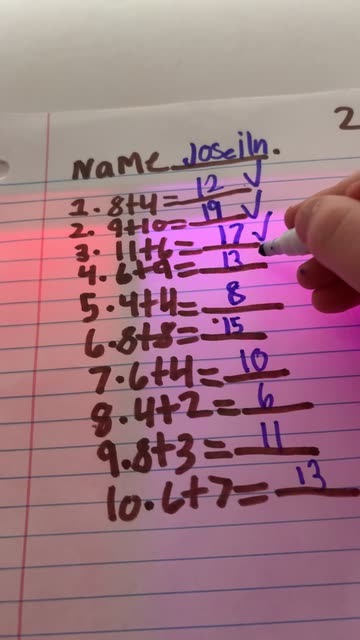 2
Name Joseiln.
1. 8+4=12 ✓
2. 9+10=19 ✓
3. 11+6=17 ✓
4. 6+9=13
5. 4+4=8
6. 8+8=15
7. 6+4=10
8. 4+2=6
9. 8+3=11
10. 6+7=13